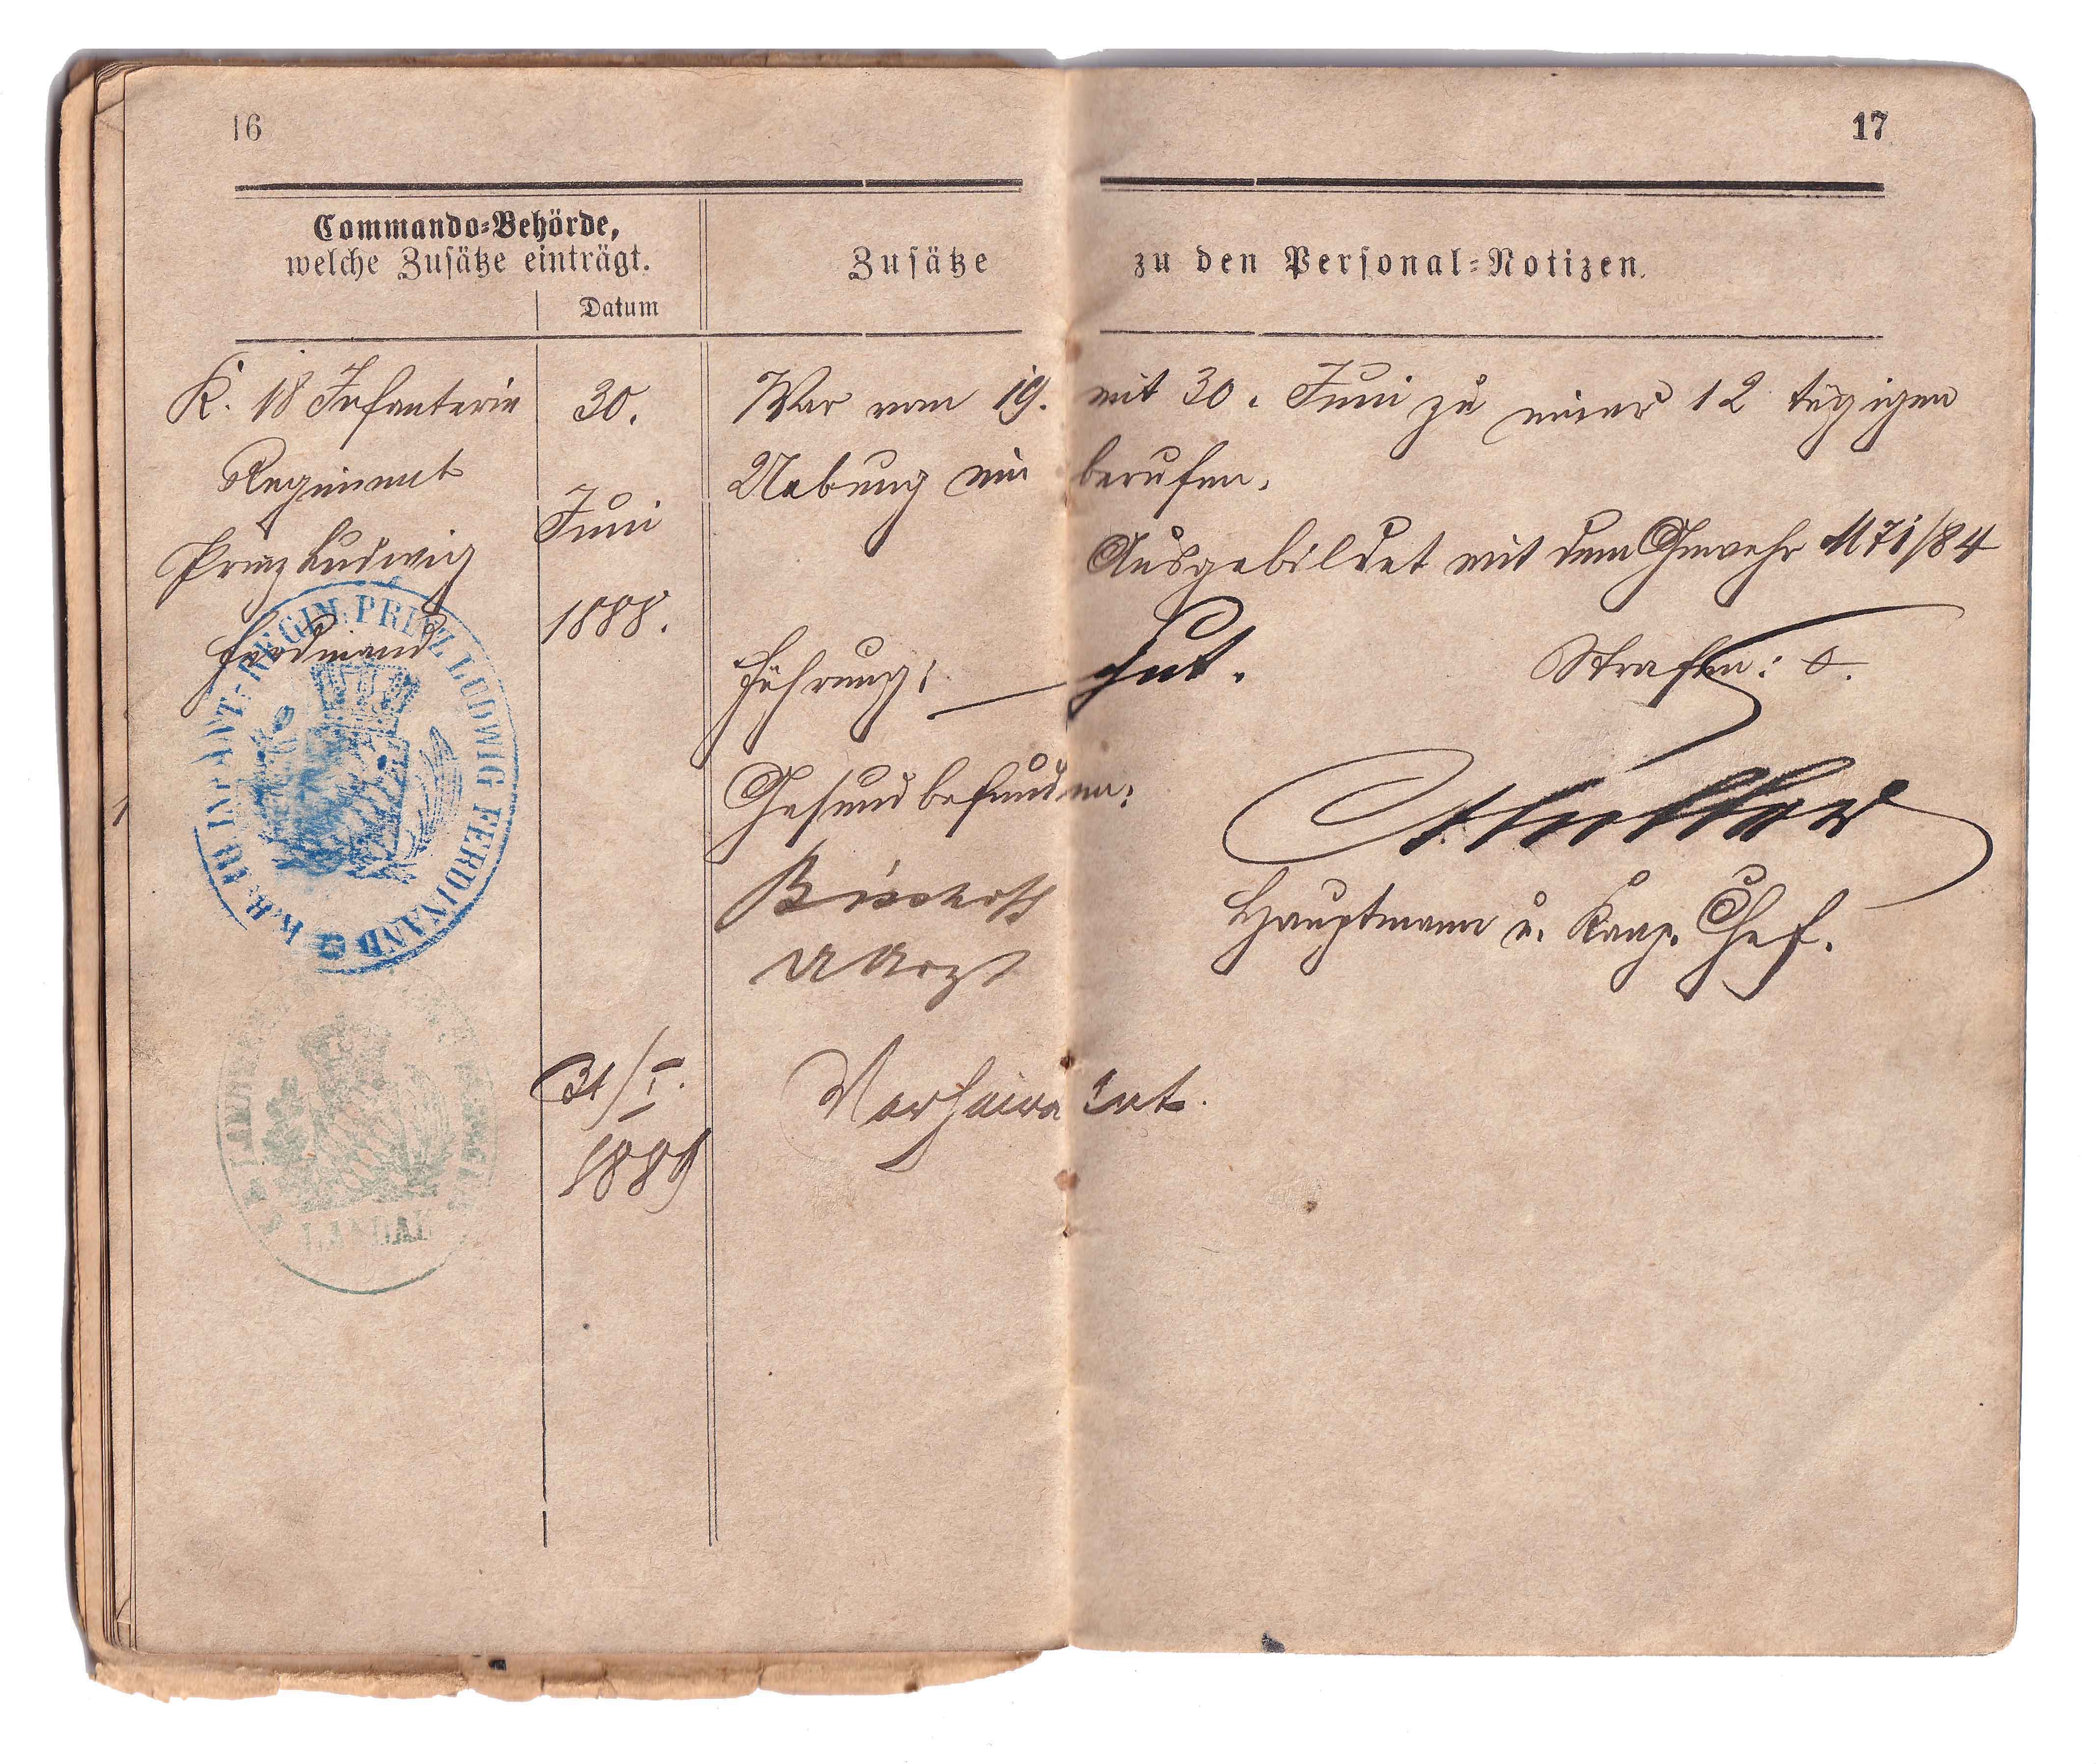 16
17
Commando-Behörde,
welche Zusätze einträgt.
Datum
Zusätze zu den Personal-Notizen.
K. 18 Infanterie
Regiment
Prinz Ludwig
Ferdinand
30.
Juni
1888.
War vom 19. mit 30. Juni zu einer 12 tägigen
Uebung einberufen.
Ausgebildet mit dem Gewehr M 71/84
Führung: gut. Strafen: 0.
Gesund befunden:
Hauptmann u. Komp. Chef.
K. B. 18 INFANT. REGIM. PRINZ LUDWIG FERDINAND
31/I.
1889
Verheiratet.
LANDAU